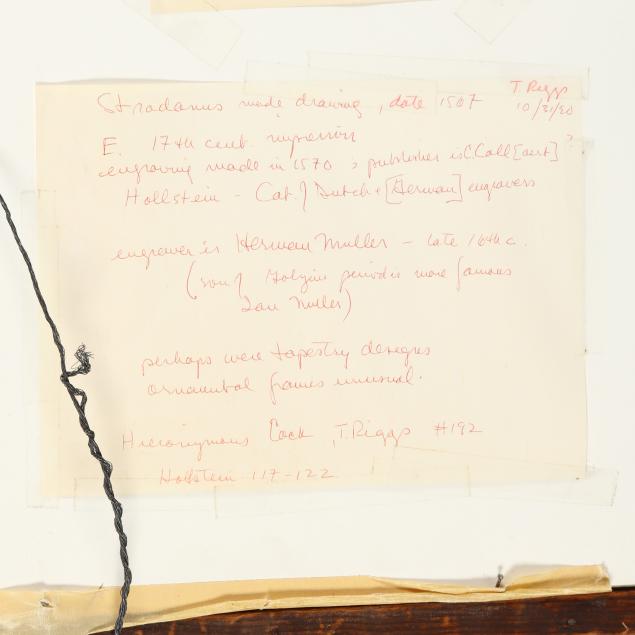 T. Riggs
Stradanus made drawing, date 1567 10/21/80
E. 17th cent. impression ?
engraving made in 1570 publisher is C. Coll[aert]
Hollstein - Cat. of Dutch & [German] engravers
engraver is Herman Muller - late 16th c.
(son of Golzius period is more famous
Jan Muller)
perhaps were tapestry designs
ornamental frames unusual.
Hieronymous Cock, T. Riggs #192
Hollstein 117-122